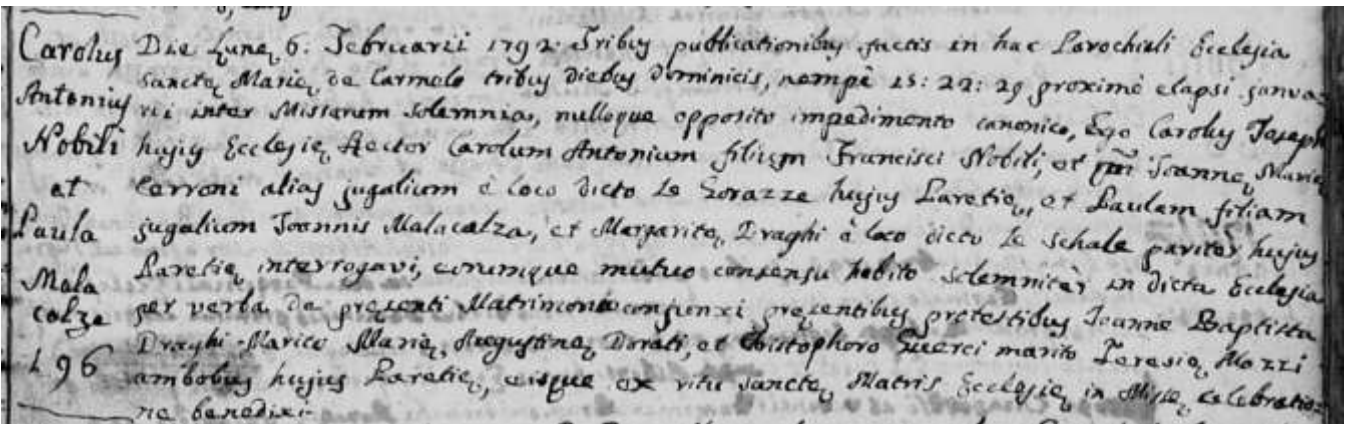 Carolus Antonius Nobili et Paula Malacalza
196
Die Lunę 6: Februarii 1792: Tribus publicationibus factis in hac Parochiali Ecclesia
Sanctę Marię de Carmelo tribus diebus Dominicis, nempè 15: 22: 29 proximè elapsi janua=
rii inter Missarum solemnia, nulloque opposito impedimento canonico, Ego Carolus Joseph
hujus Ecclesię Rector Carolum Antonium filium Francisci Nobili, et Joannę Marię
Cerroni alias jugalium è loco dicto Le Corazze hujus Parecię, et Paulam filiam
jugalium Joannis Malacalza, et Margaritę Draghi è loco dicto Le Schale pariter hujus
Parecię interrogavi, eorumque mutuo consensu habito solemnitèr in dicta Ecclesia
per verba de pręsenti Matrimonio conjunxi pręsentibus pro testibus Joanne Baptista
Draghi Marito Marię Augustinę Dorati, et Christophoro Guerci marito Teresię Mozzi
ambobus hujus Parecię, eisque ex ritu Sanctę Matris Ecclesię in Missę celebratio=
ne benedixi.